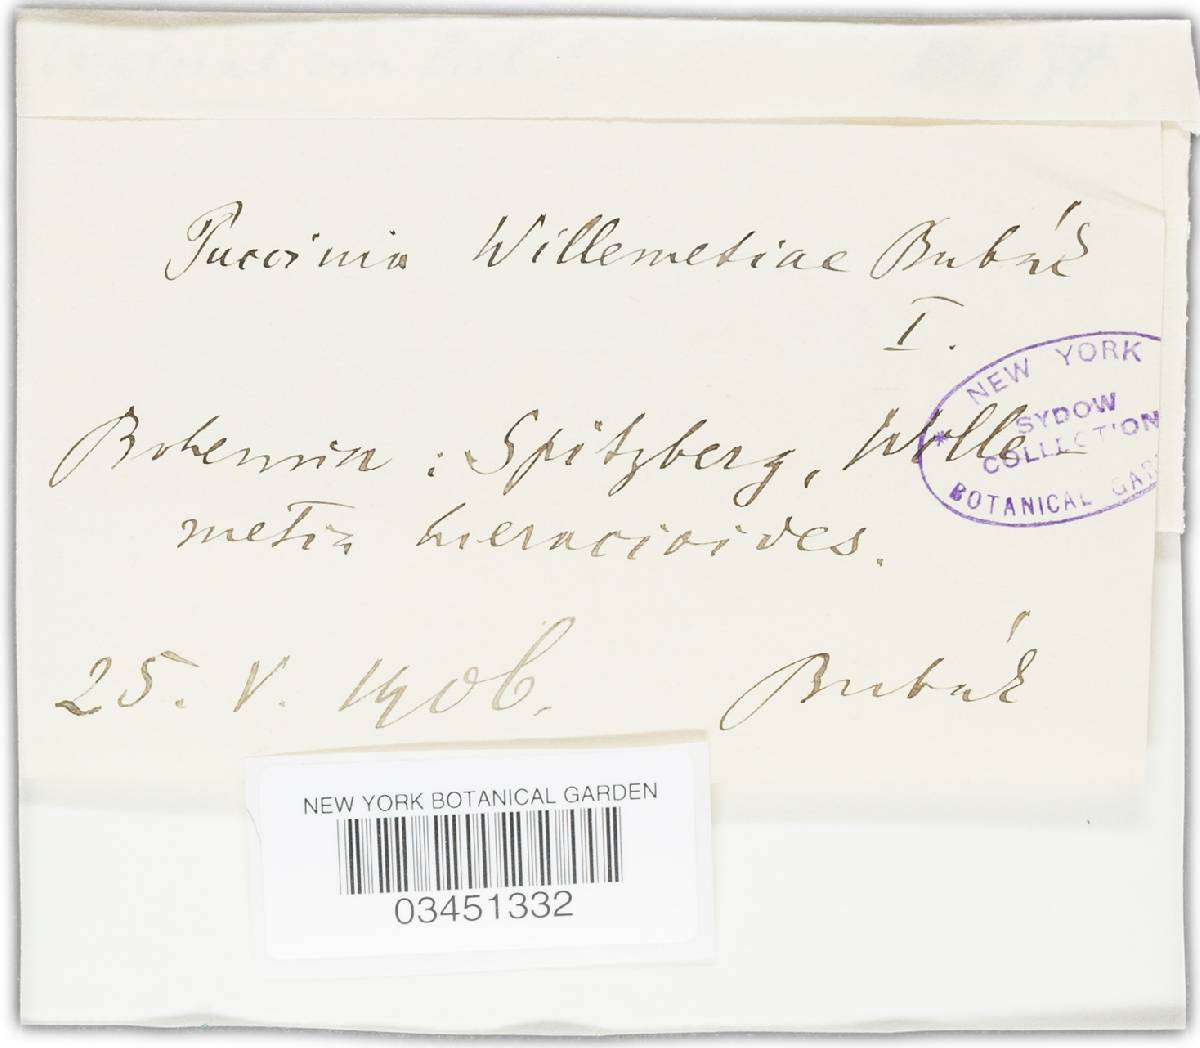 Puccinia Willemetiae Bubák
I.
Bohemia: Spitzberg, Wille-
metia hieracioides.
25. V. 1906. Bubák
NEW YORK
SYDOW
COLLECTION
BOTANICAL GAR
NEW YORK BOTANICAL GARDEN
03451332